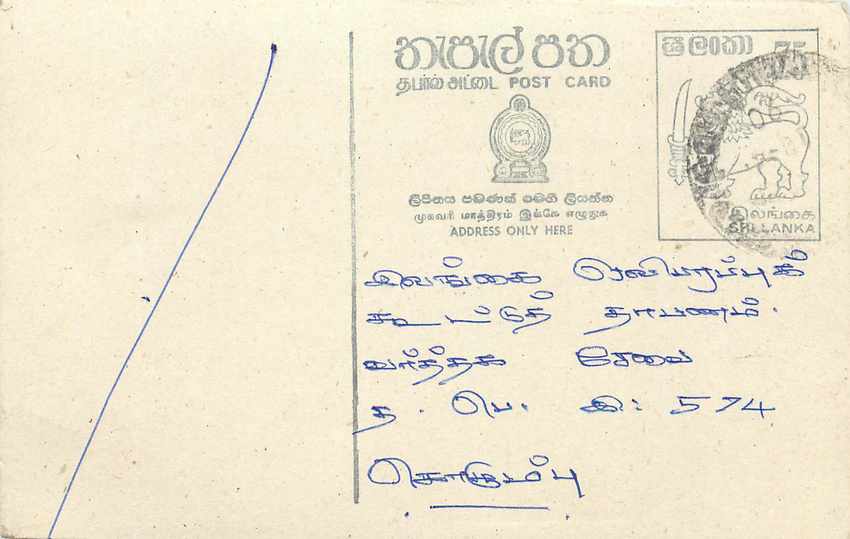 තැපැල් පත
தபால் அட்டை POST CARD
ලිපිනය පමණක් මෙහි ලියන්න
முகவரி மாத்திரம் இங்கே எழுதுக
ADDRESS ONLY HERE
ශ්‍රී ලංකා 75
இலங்கை
SRI LANKA
இலங்கை ஒலிபரப்புக்
கூட்டுத் தாபனம்.
வர்த்தக சேவை
த. பெ. இ: 574
கொழும்பு